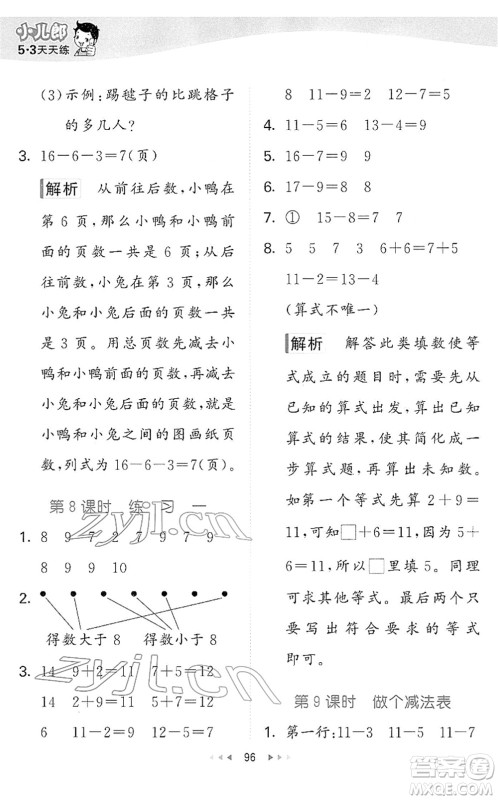 小儿郎
5·3天天练
(3)示例：踢毽子的比跳格子
的多几人？
3. 16－6－3＝7(页)
解析 从前往后数，小鸭在
第 6 页，那么小鸭和小鸭前
面的页数一共是 6 页；小兔
在倒数第 3 页，那么
小兔和小兔后面的页数一共
是 3 页。用总页数先减去小
鸭和小鸭前面的页数，再减去
小兔和小兔后面的页数，就是
小鸭和小兔之间的图画纸页
数，列式为 16－6－3＝7(页)。
第 8 课时 练 习 一
1. 8 9 7 2 7 9 7 9
8 9 9 10
2.
得数大于 8 得数小于 8
3. 14 9＋2＝11 7＋5＝12
14 2＋9＝11 5＋7＝12
6 11－2＝9 12－5＝7
8 11－9＝2 12－7＝5
4. 11－5＝6 13－4＝9
5. 16－7＝9
6. 17－9＝8
7. ① 15－8＝7
8. 5 5 7 3 6＋6＝7＋5
11－2＝13－4
(算式不唯一)
解析 解答此类填数使等
式成立的题目时，需要先从
已知的算式出发，算出已知
算式的结果，使其简化成一
步算式题，再算出未知数。
例如第一个等式先算 2＋9＝
11，可知□＋6＝11，因为 5＋
6＝11，所以□里填 5。同理
可求其他等式，最后还可以
写出符合要求的等式
即可。
第 9 课时 做个减法表
1. 第一行：11－3 11－5 11－7
96
zyjl.cn
zyjl.cn
答案圈
MXQE.COM